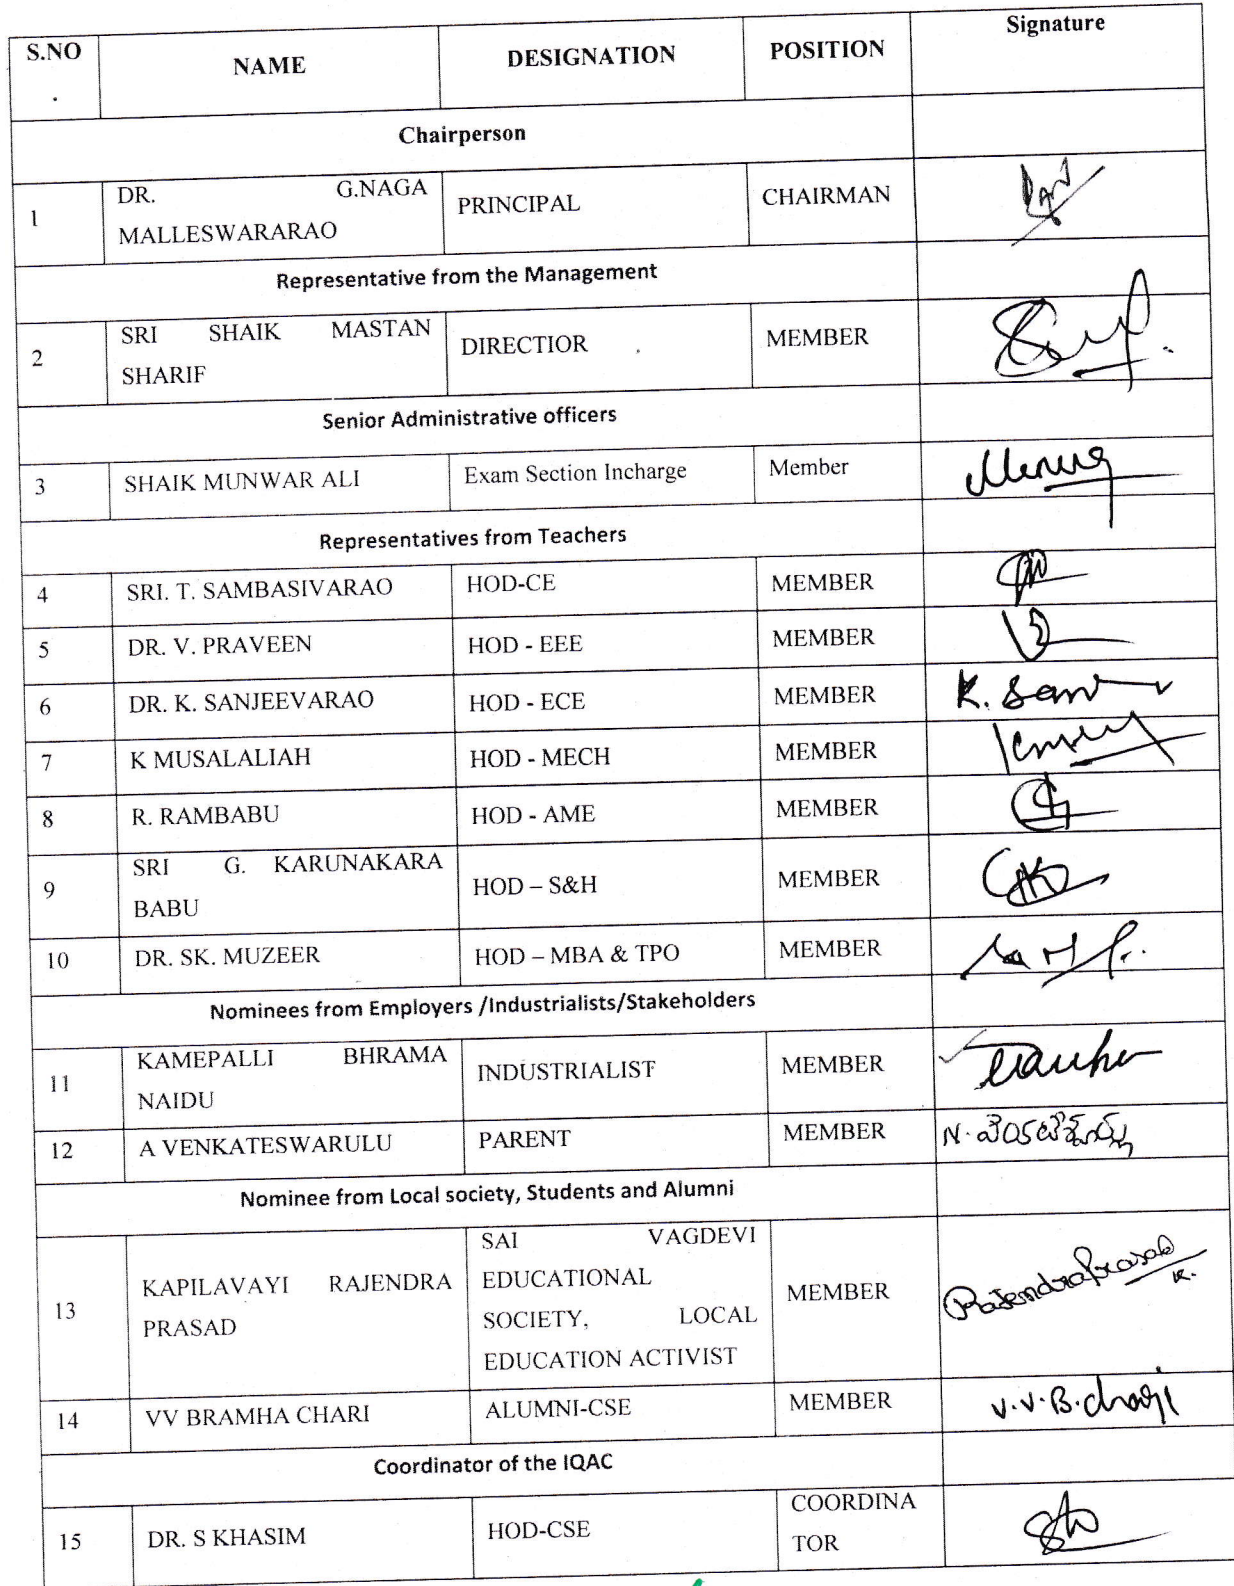 S.NO NAME DESIGNATION POSITION Signature
.
Chairperson
1 DR. G.NAGA MALLESWARARAO PRINCIPAL CHAIRMAN
Representative from the Management
2 SRI SHAIK MASTAN SHARIF DIRECTIOR MEMBER
Senior Administrative officers
3 SHAIK MUNWAR ALI Exam Section Incharge Member
Representatives from Teachers
4 SRI. T. SAMBASIVARAO HOD-CE MEMBER
5 DR. V. PRAVEEN HOD - EEE MEMBER
6 DR. K. SANJEEVARAO HOD - ECE MEMBER K.
7 K MUSALALIAH HOD - MECH MEMBER
8 R. RAMBABU HOD - AME MEMBER
9 SRI G. KARUNAKARA BABU HOD – S&H MEMBER
10 DR. SK. MUZEER HOD – MBA & TPO MEMBER
Nominees from Employers /Industrialists/Stakeholders
11 KAMEPALLI BHRAMA NAIDU INDUSTRIALIST MEMBER
12 A VENKATESWARULU PARENT MEMBER N.
Nominee from Local society, Students and Alumni
13 KAPILAVAYI RAJENDRA PRASAD SAI VAGDEVI EDUCATIONAL SOCIETY, LOCAL EDUCATION ACTIVIST MEMBER RajendraPrasad K.
14 VV BRAMHA CHARI ALUMNI-CSE MEMBER V.V.B.chari
Coordinator of the IQAC
15 DR. S KHASIM HOD-CSE COORDINA TOR